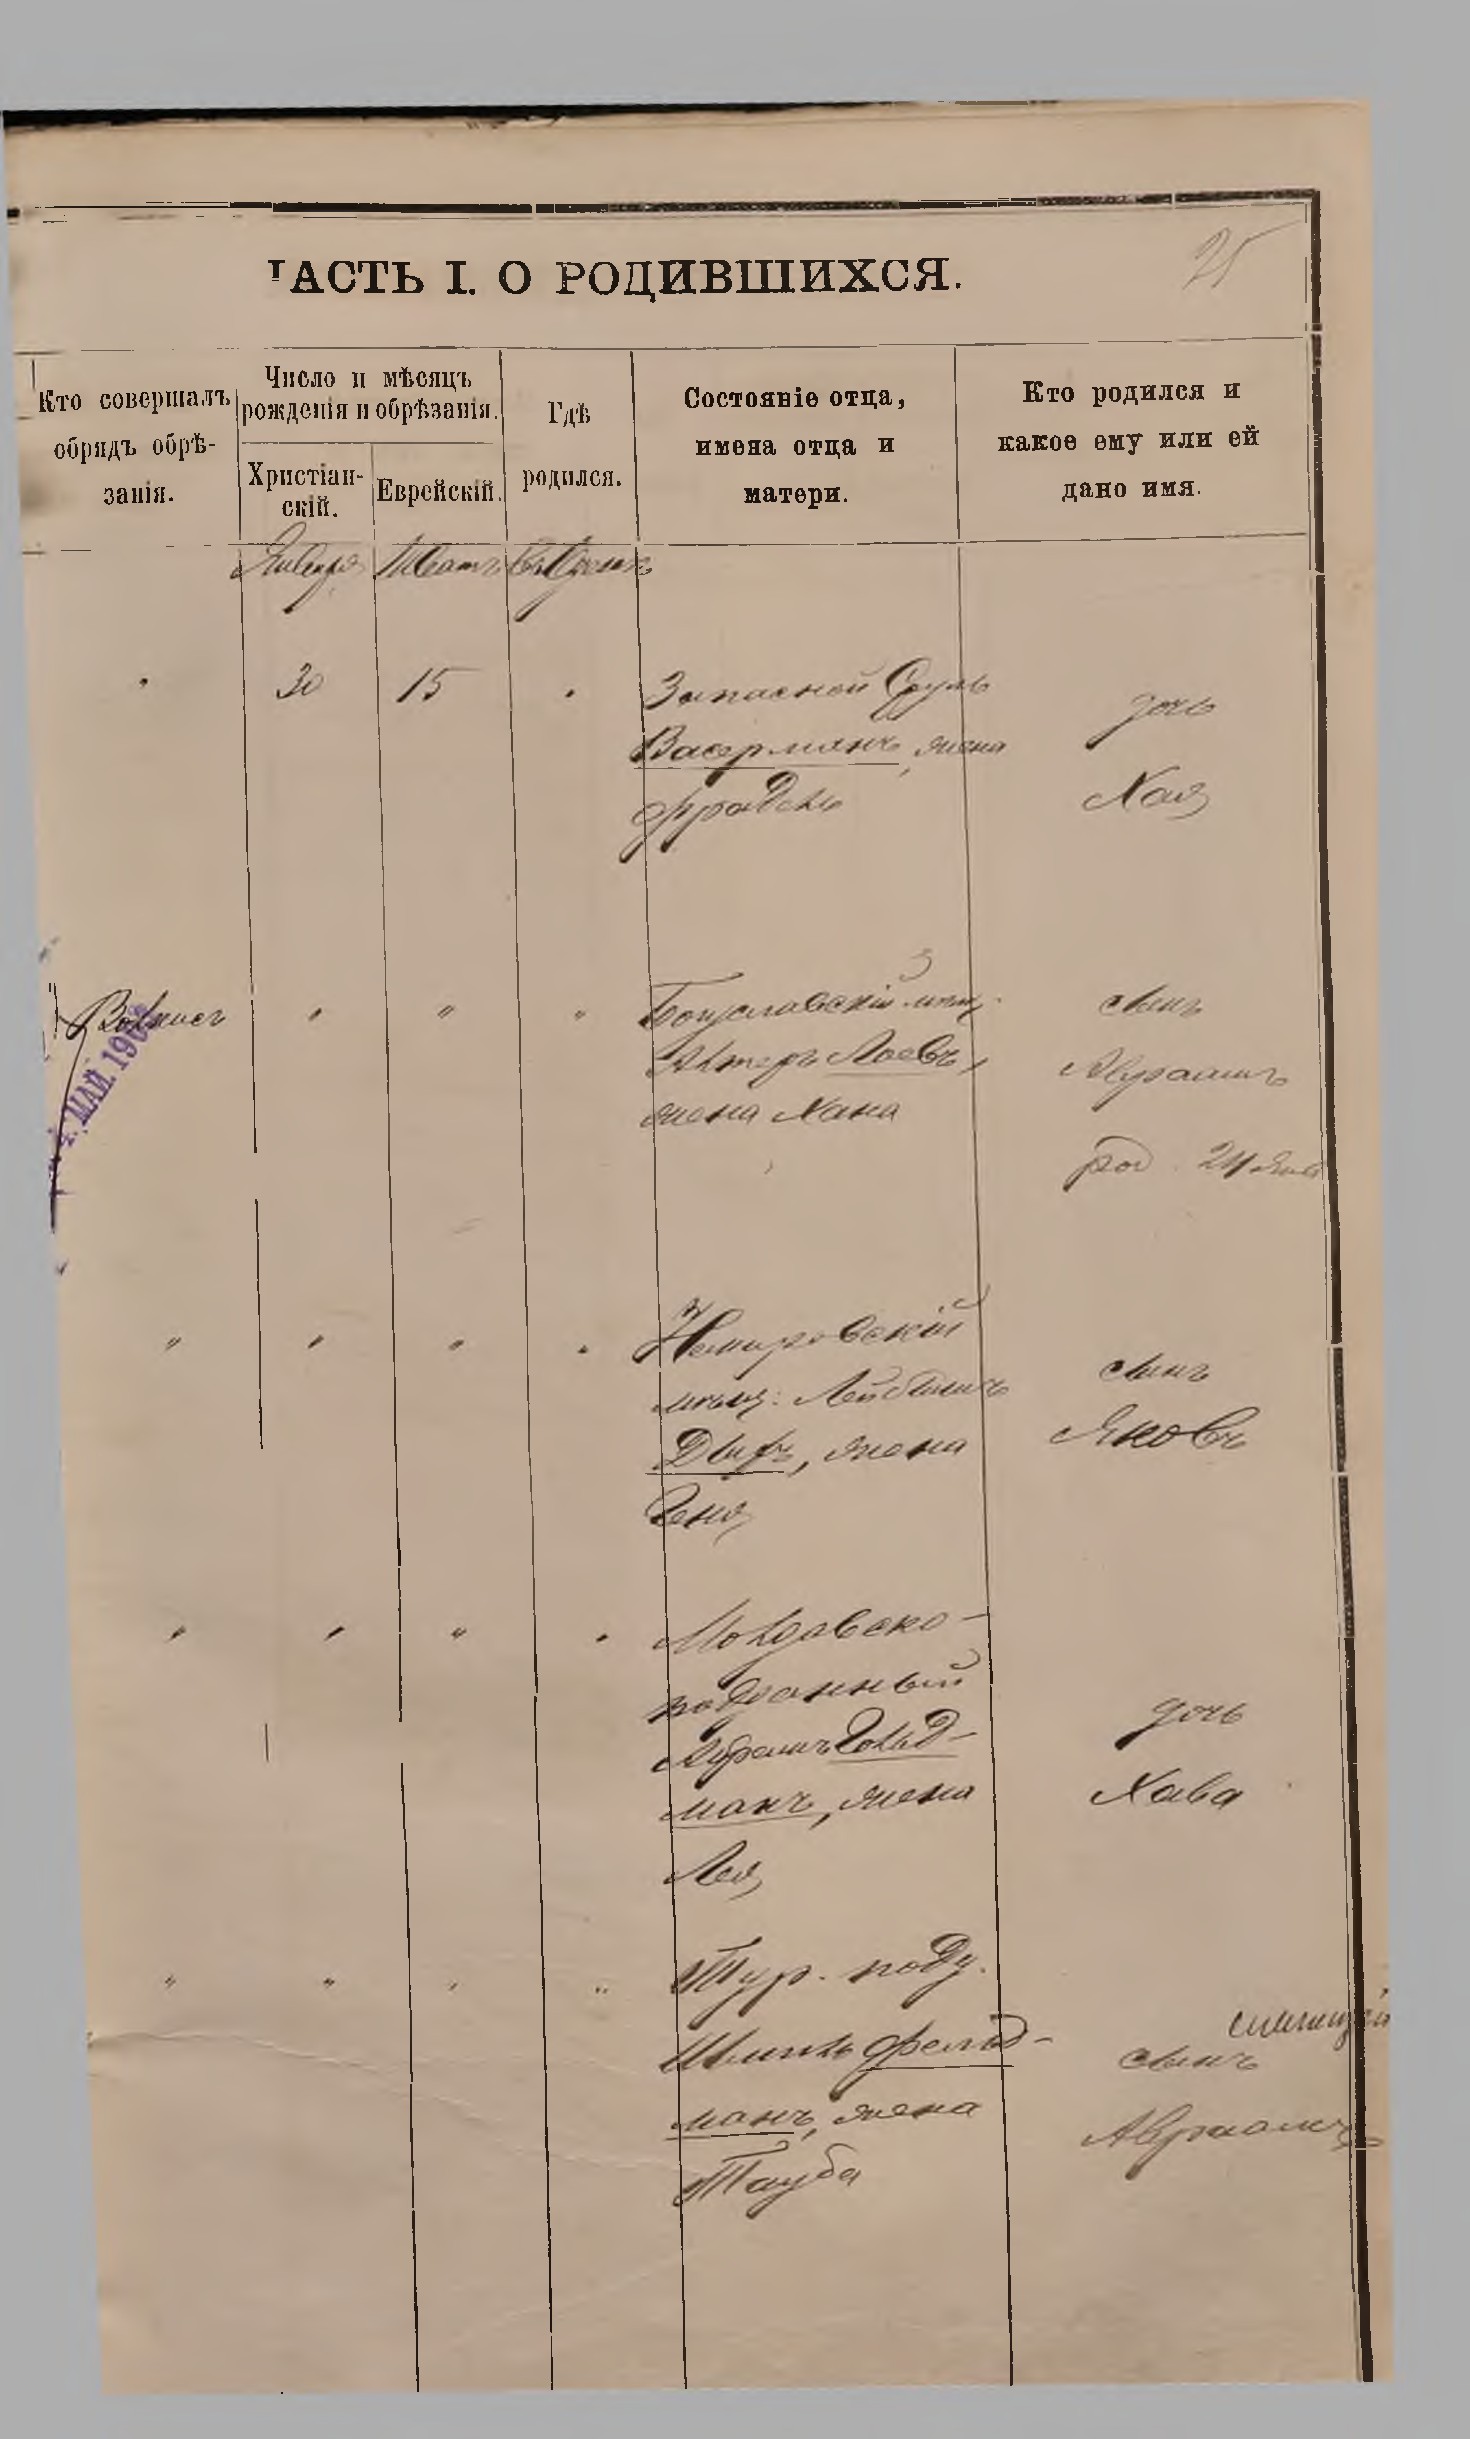 25
ЧАСТЬ I. О РОДИВШИХСЯ.
Кто совершалъ обрядъ обрѣ-занія.
Число и мѣсяцъ рожденія и обрѣзанія.
Христіан-скій.
Еврейскій.
Гдѣ родился.
Состояніе отца, имена отца и матери.
Кто родился и какое ему или ей дано имя.
Января Шватъ
30 15 Запасной Сруль
Васерманъ, жена
Фрадель
дочь
Хая
Богуславскій мѣщ.
Альтеръ Лаевъ,
жена Хана
сынъ
Авраамъ
род. 24 Янв
МАЙ 190
Немировскій
мѣщ: Лейбишъ
Дыхъ, жена
Геня
сынъ
Яковъ
Молдавско-
подданный
Абрамъ Гольд-
манъ, жена
Лея
дочь
Хава
Тур. подд.
Шмиль Фельд-
манъ, жена
Тауба
сынъ
Авраамъ